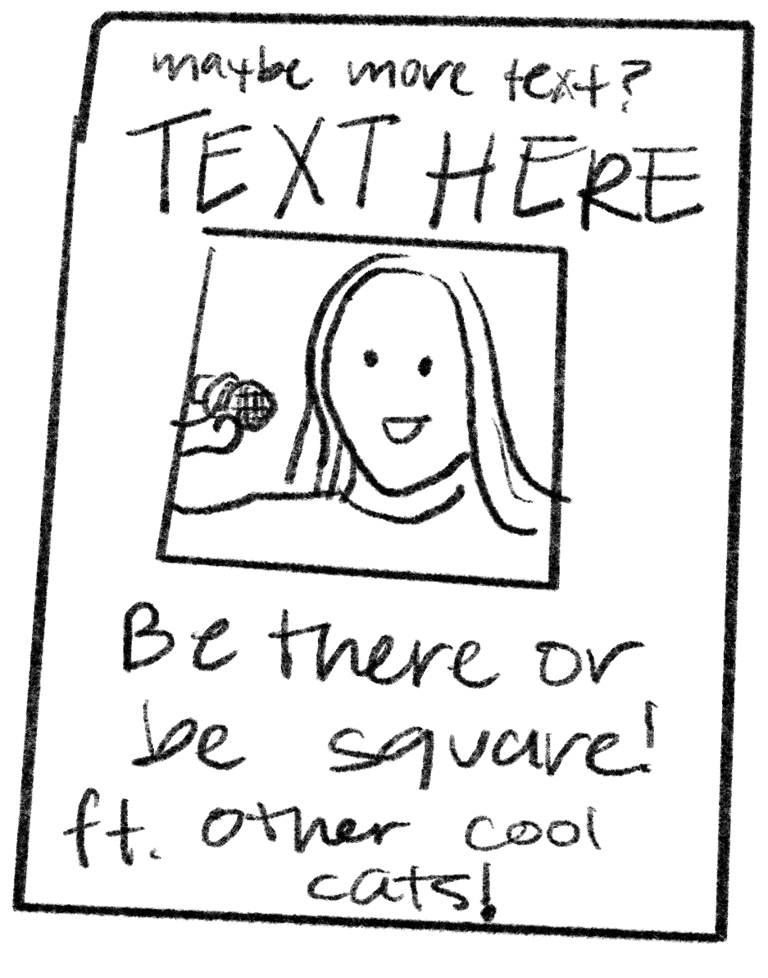 maybe more text?
TEXT HERE
Be there or
be square!
ft. other cool
cats!